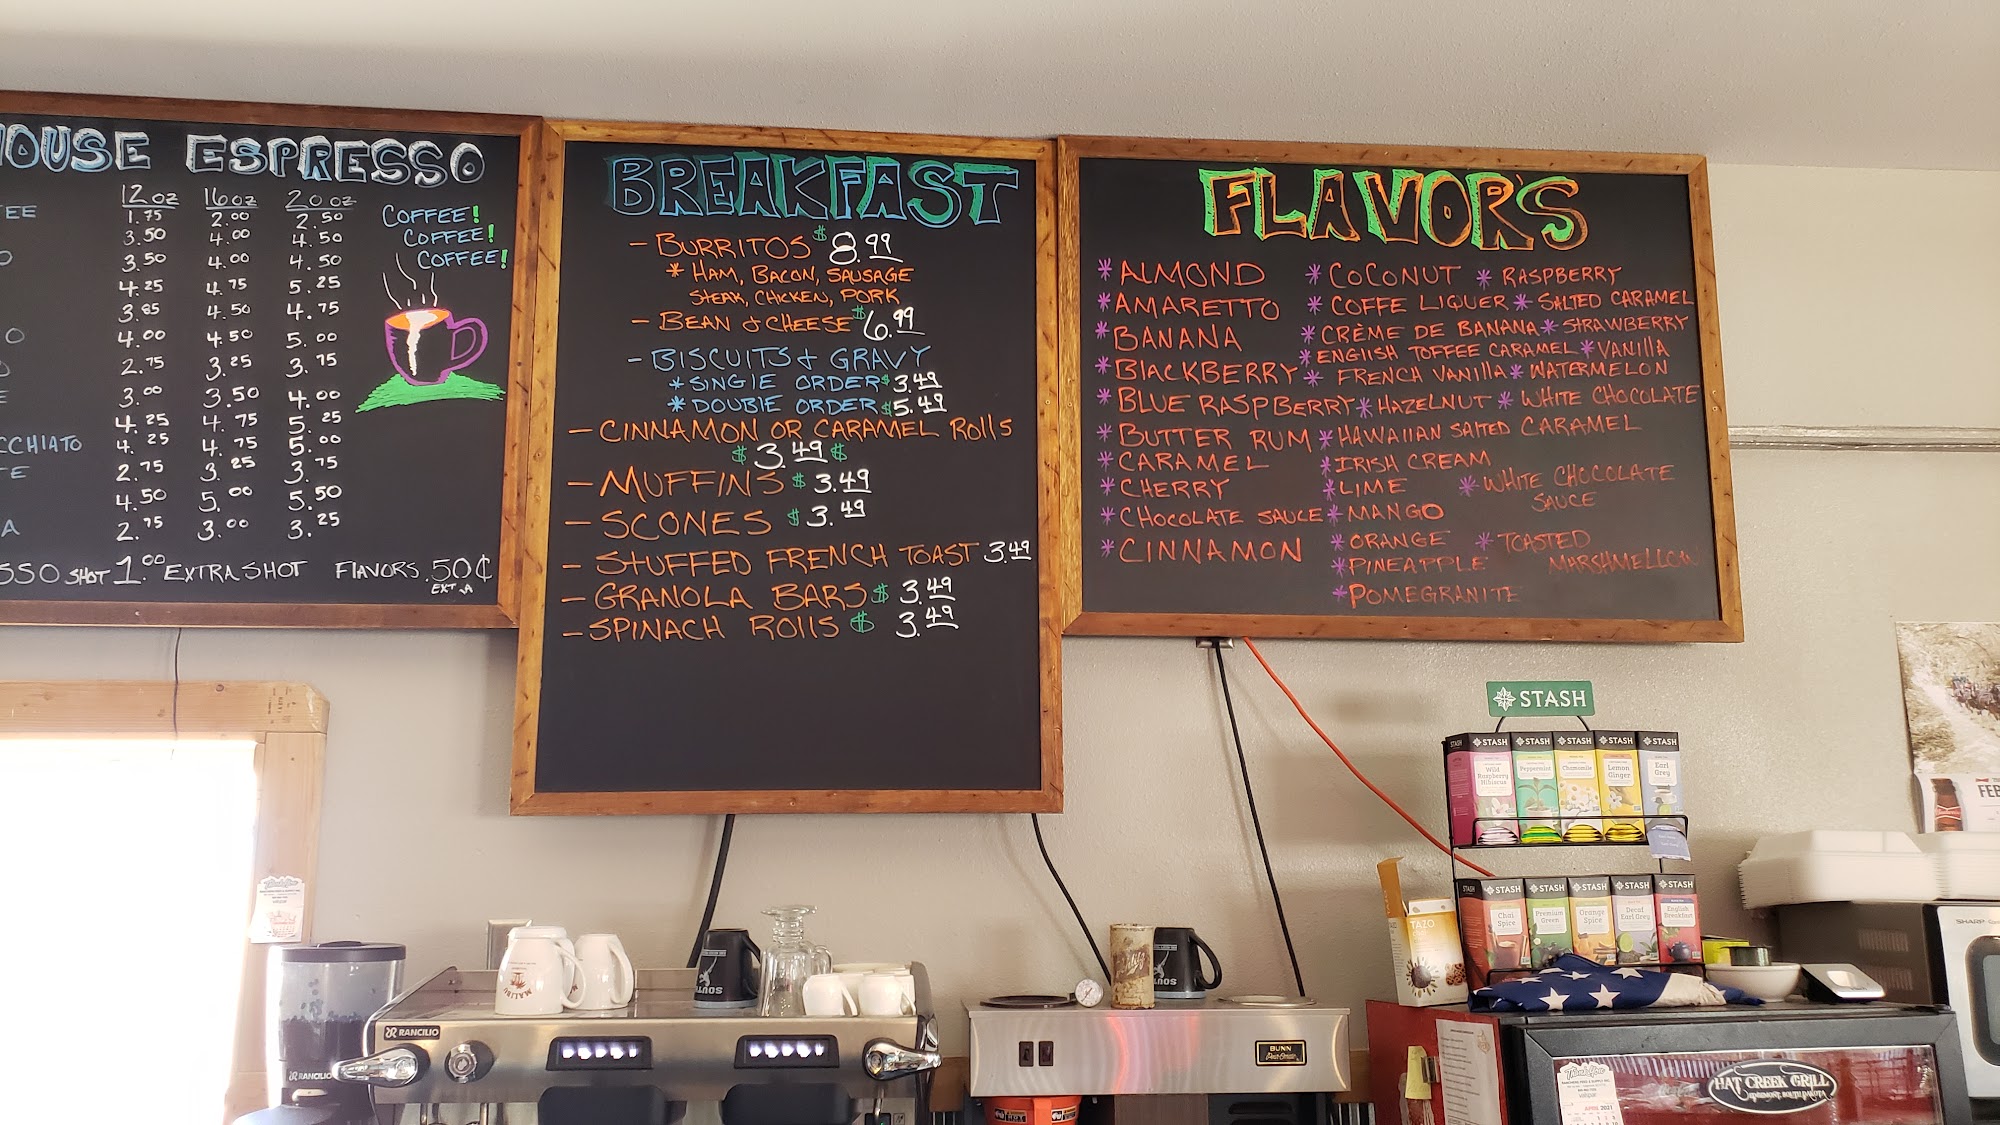 HOUSE ESPRESSO
12 oz 16 oz 20 oz
1.75 2.00 2.50
3.50 4.00 4.50
3.50 4.00 4.50
4.25 4.75 5.25
3.85 4.50 4.75
4.00 4.50 5.00
2.75 3.25 3.75
3.00 3.50 4.00
4.25 4.75 5.25
CCHIATO 4.25 4.75 5.00
2.75 3.25 3.75
4.50 5.00 5.50
2.75 3.00 3.25
SSO SHOT 1.00 EXTRA SHOT FLAVORS .50¢
EXT.A
COFFEE!
COFFEE!
COFFEE!
BREAKFAST
- BURRITOS $8.99
* HAM, BACON, SAUSAGE
STEAK, CHICKEN, PORK
- BEAN & CHEESE $6.99
- BISCUITS & GRAVY
* SINGLE ORDER $3.49
* DOUBLE ORDER $5.49
- CINNAMON OR CARAMEL ROLLS
$3.49$
- MUFFINS $3.49
- SCONES $3.49
- STUFFED FRENCH TOAST 3.49
- GRANOLA BARS $3.49
- SPINACH ROLLS $3.49
FLAVOR'S
* ALMOND
* AMARETTO
* BANANA
* BLACKBERRY
* BLUE RASPBERRY
* BUTTER RUM
* CARAMEL
* CHERRY
* CHOCOLATE SAUCE
* CINNAMON
* COCONUT
* COFFE LIQUER
* CRÈME DE BANANA
* ENGLISH TOFFEE CARAMEL
* FRENCH VANILLA
* HAZELNUT
* HAWAIIAN SALTED CARAMEL
* IRISH CREAM
* LIME
* MANGO
* ORANGE
* PINEAPPLE
* POMEGRANITE
* RASPBERRY
* SALTED CARAMEL
* STRAWBERRY
* VANILLA
* WATERMELON
* WHITE CHOCOLATE
* WHITE CHOCOLATE
SAUCE
* TOASTED
MARSHMELLOW
STASH
STASH STASH STASH STASH STASH STASH
Wild
Raspberry
Hibiscus
Peppermint
Chamomile
Lemon
Ginger
Earl
Grey
STASH STASH STASH STASH STASH
Chai
Spice
Premium
Green
Orange
Spice
Decaf
Earl Grey
English
Breakfast
TAZO
FEB
SHARP
RANCILIO
RANCILIO
MALIBU
SOUTH
SOUTH
BUNN
Pour-Omatic
HOT
HOT
Thank You
Thank You
valspar
APRIL 2021
HAT CREEK GRILL
ARDMORE SOUTH DAKOTA